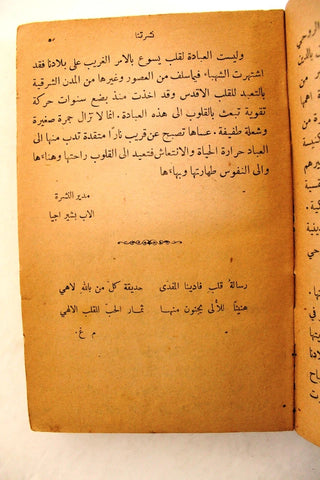 نشرتنا
٥
وليست العبادة لقلب يسوع بالامر الغريب على بلادنا فقد
اشتهرت الشهباء فيما سلف من العصور وغيرها من المدن الشرقية
بالتعبد للقلب الاقدس وقد اخذت منذ بضع سنوات حركة
تقوية تبعث بالقلوب الى هذه العبادة. انما لا تزال جمرة صغيرة
وشعلة طفيفة. عساها تصبح عن قريب نارًا متقدة تدب منها الى
العباد حرارة الحياة والانتعاش فتعيد الى القلوب راحتها وهناءها
والى النفوس طهارتها وبهاءها
مدير النشرة
الاب بشير اجيا
رسالةُ قلب فادينا المفدى حديقة كل من بالله لاهي
هنيئًا للألى يجنون منهـا ثمار الحبّ للقلب الالهي
م غ.